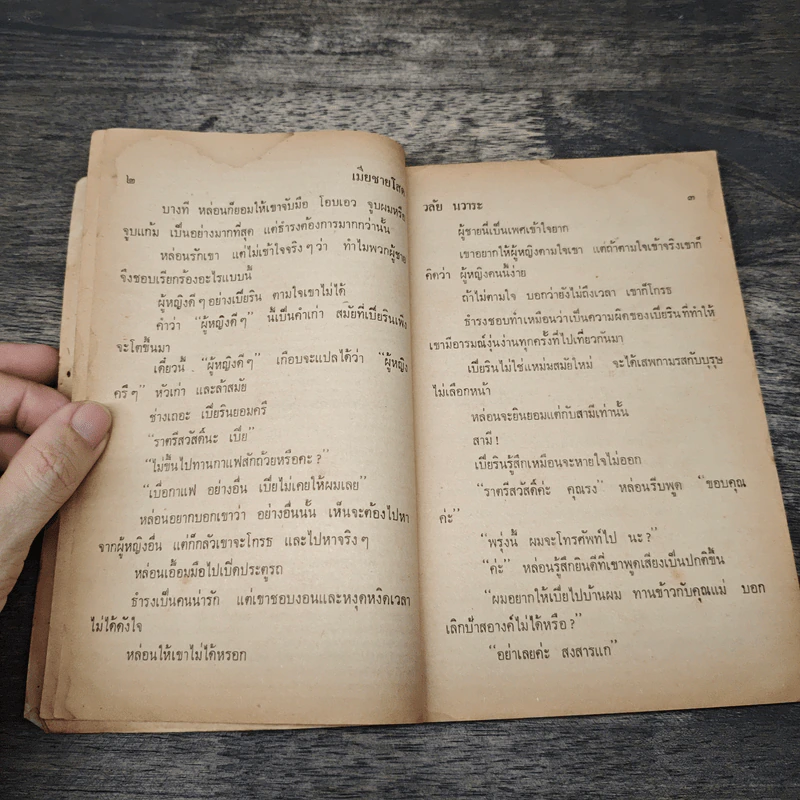 ๒
เมียชายโสด
บางที หล่อนก็ยอมให้เขาจับมือ โอบเอว จูบผมหรือ
จูบแก้ม เป็นอย่างมากที่สุด แต่ธำรงต้องการมากกว่านั้น
หล่อนรักเขา แต่ไม่เข้าใจจริง ๆ ว่า ทำไมพวกผู้ชาย
จึงชอบเรียกร้องอะไรแบบนี้
ผู้หญิงดี ๆ อย่างเบียริน ตามใจเขาไม่ได้
คำว่า “ผู้หญิงดี ๆ” นี้เป็นคำเก่า สมัยที่เบียรินเพิ่ง
จะโตขึ้นมา
เดี๋ยวนี้ “ผู้หญิงดี ๆ” เกือบจะแปลได้ว่า “ผู้หญิง
ครึ ๆ” หัวเก่า และล้าสมัย
ช่างเถอะ เบียรินยอมครึ
“ราตรีสวัสดิ์นะ เบีย”
“ไม่ขึ้นไปทานกาแฟสักถ้วยหรือคะ ?”
“เบื่อกาแฟ อย่างอื่น เบียไม่เคยให้ผมเลย”
หล่อนอยากบอกเขาว่า อย่างอื่นนั้น เห็นจะต้องไปหา
จากผู้หญิงอื่น แต่ก็กลัวเขาจะโกรธ และไปหาจริง ๆ
หล่อนเอื้อมมือไปเปิดประตูรถ
ธำรงเป็นคนน่ารัก แต่เขาชอบงอนและหงุดหงิดเวลา
ไม่ได้ดังใจ
หล่อนให้เขาไม่ได้หรอก
วลัย นวาระ
๓
ผู้ชายนี่เป็นเพศเข้าใจยาก
เขาอยากให้ผู้หญิงตามใจเขา แต่ถ้าตามใจเข้าจริงเขาก็
คิดว่า ผู้หญิงคนนี้ง่าย
ถ้าไม่ตามใจ บอกว่ายังไม่ถึงเวลา เขาก็โกรธ
ธำรงชอบทำเหมือนว่าเป็นความผิดของเบียรินที่ทำให้
เขามีอารมณ์วุ่นง่านทุกครั้งที่ไปเที่ยวกันมา
เบียรินไม่ใช่แหม่มสมัยใหม่ จะได้เสพกามรสกับบุรุษ
ไม่เลือกหน้า
หล่อนจะยินยอมแต่กับสามีเท่านั้น
สามี !
เบียรินรู้สึกเหมือนจะหายใจไม่ออก
“ราตรีสวัสดิ์ค่ะ คุณรง” หล่อนรีบพูด “ขอบคุณ
ค่ะ”
“พรุ่งนี้ ผมจะโทรศัพท์ไป นะ ?”
“ค่ะ” หล่อนรู้สึกยินดีที่เขาพูดเสียงเป็นปกติขึ้น
“ผมอยากให้เบียไปบ้านผม ทานข้าวกับคุณแม่ บอก
เลิกป้าสอางค์ไม่ได้หรือ ?”
“อย่าเลยค่ะ สงสารแก”